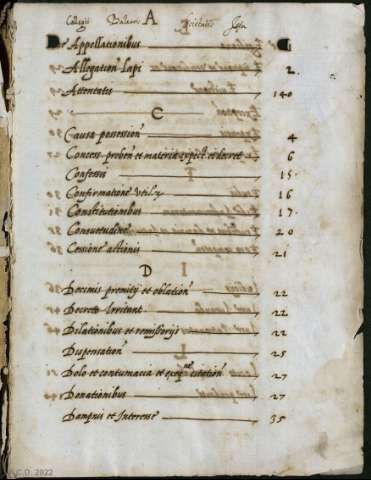 Collegii
A
De Appellationibus 1
Allegation Lapi 2
Attentatis 140
C
Causa possession 4
Concess proben et materia expect et decret 6
Confessis 15
Confirmatione Utili 16
Constitutionibus 17
Consuetudine 20
Cessione actionis 21
D
Decimis premitijs et oblation 22
Decreto Irritant 22
Dilationibus et remissorijs 22
Dispensation 25
Dolo et contumacia et citation 27
Donationibus 27
Dampnis et Interesse 35
C.D. 2022